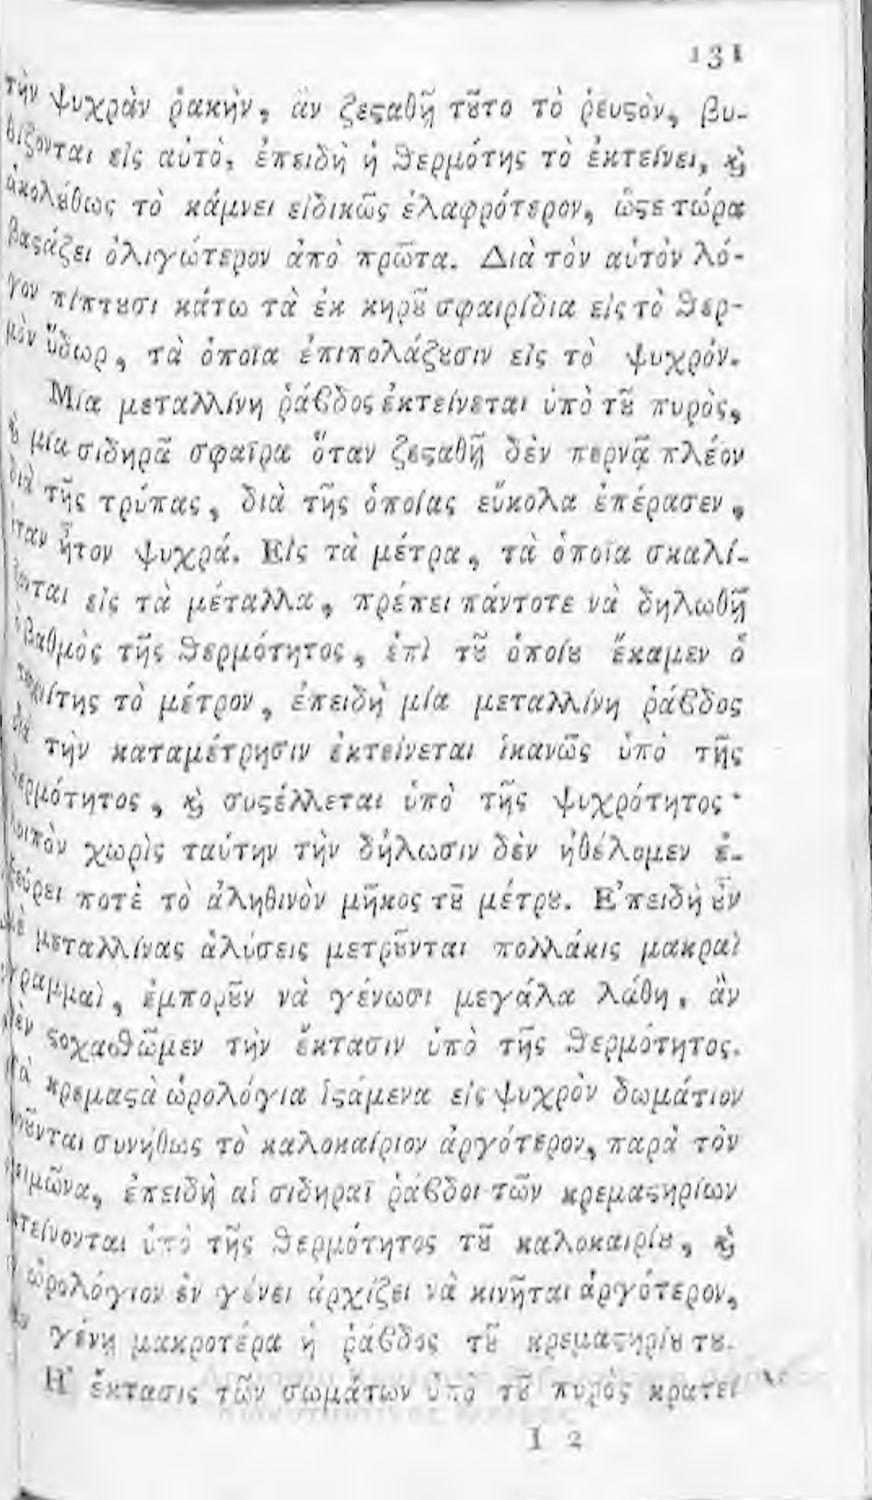 131
τὴν ψυχρὰν ῥακὴν, ἂν ζεϛαθῇ τȣ͂το τὸ ῥευϛὸν, βυ-
θίζονται εἰς αὐτὸ, ἐπειδὴ ἡ ϑερμότης τὸ ἐκτείνει, ϗ̀
ἀκολȣ́θως τὸ κάμνει εἰδικῶς ἐλαφρότερον, ὥϛε τώρα
βαϛάζει ὀλιγώτερον ἀπὸ πρῶτα. Διὰ τὸν αὐτὸν λό-
γον πίπτȣσι κάτω τὰ ἐκ κηρȣ͂ σφαιρίδια εἰς τὸ ϑερ-
μὸν ὕδωρ, τὰ ὁποῖα ἐπιπολάζȣσιν εἰς τὸ ψυχρόν.
Μία μεταλλίνη ῥάβδος ἐκτείνεται ὑπὸ τȣ͂ πυρὸς,
ϗ̀ μία σιδηρᾶ σφαῖρα ὅταν ζεϛαθῇ δὲν περνᾷ πλέον
διὰ τῆς τρύπας, διὰ τῆς ὁποίας εὔκολα ἐπέρασεν,
ὅταν ἦτον ψυχρά. Εἰς τὰ μέτρα, τὰ ὁποῖα σκαλί-
ζονται εἰς τὰ μέταλλα, πρέπει πάντοτε νὰ δηλωθῇ
ὁ βαθμὸς τῆς ϑερμότητος, ἐπὶ τȣ͂ ὁποίȣ ἔκαμεν ὁ
τεχνίτης τὸ μέτρον, ἐπειδὴ μία μεταλλίνη ῥάβδος
διὰ τὴν καταμέτρησιν ἐκτείνεται ἱκανῶς ὑπὸ τῆς
ϑερμότητος, ϗ̀ συϛέλλεται ὑπὸ τῆς ψυχρότητος·
λοιπὸν χωρὶς ταύτην τὴν δήλωσιν δὲν ἠθέλομεν ἐ-
ξεύρει ποτὲ τὸ ἀληθινὸν μῆκος τȣ͂ μέτρȣ. Ἐπειδὴ ȣ̓͂ν
μὲ μεταλλίνας ἁλύσεις μετρȣ͂νται πολλάκις μακραὶ
γραμμαὶ, ἐμπορȣ͂ν νὰ γένωσι μεγάλα λάθη, ἂν
δὲν ϛοχασθῶμεν τὴν ἔκτασιν ὑπὸ τῆς ϑερμότητος.
Τὰ κρεμαϛὰ ὡρολόγια ἱϛάμενα εἰς ψυχρὸν δωμάτιον
κινȣ͂νται συνήθως τὸ καλοκαίριον ἀργότερον, παρὰ τὸν
χειμῶνα, ἐπειδὴ αἱ σιδηραῖ ῥάβδοι τῶν κρεμαϛηρίων
ἐκτείνονται ὑπὸ τῆς ϑερμότητος τȣ͂ καλοκαιρίȣ, ϗ̀
ὡρολόγιον ἐν γένει ἀρχίζει νὰ κινῆται ἀργότερον,
γένῃ μακροτέρα ἡ ῥάβδος τȣ͂ κρεμαϛηρίȣ τȣ.
Ἡ ἔκτασις τῶν σωμάτων ὑπὸ τȣ͂ πυρὸς κρατεῖ
I 2